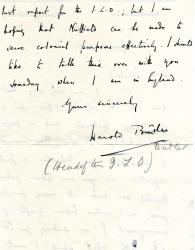 last report for the I.L.O.; but I am
hoping that Nuffield can be made to
serve colonial purposes effectively. I should
like to talk this over with you
someday, when I am in England.
Yours sincerely
Harold Butler
Butler
(Head of the I.L.O)